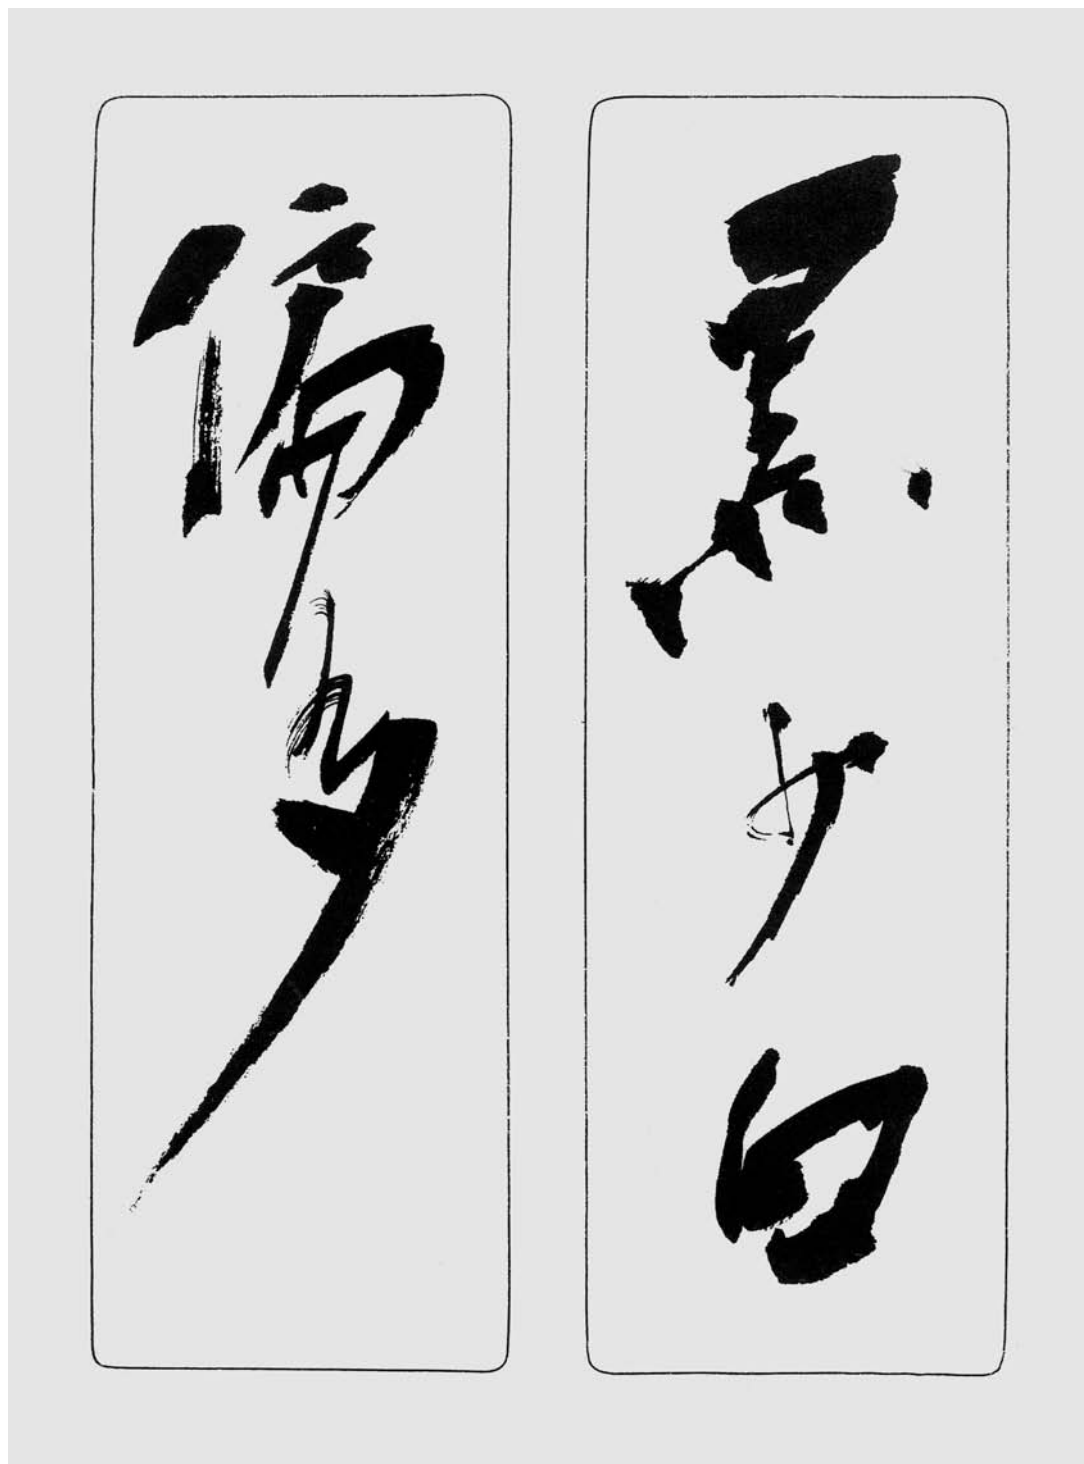 黑少白
偏多